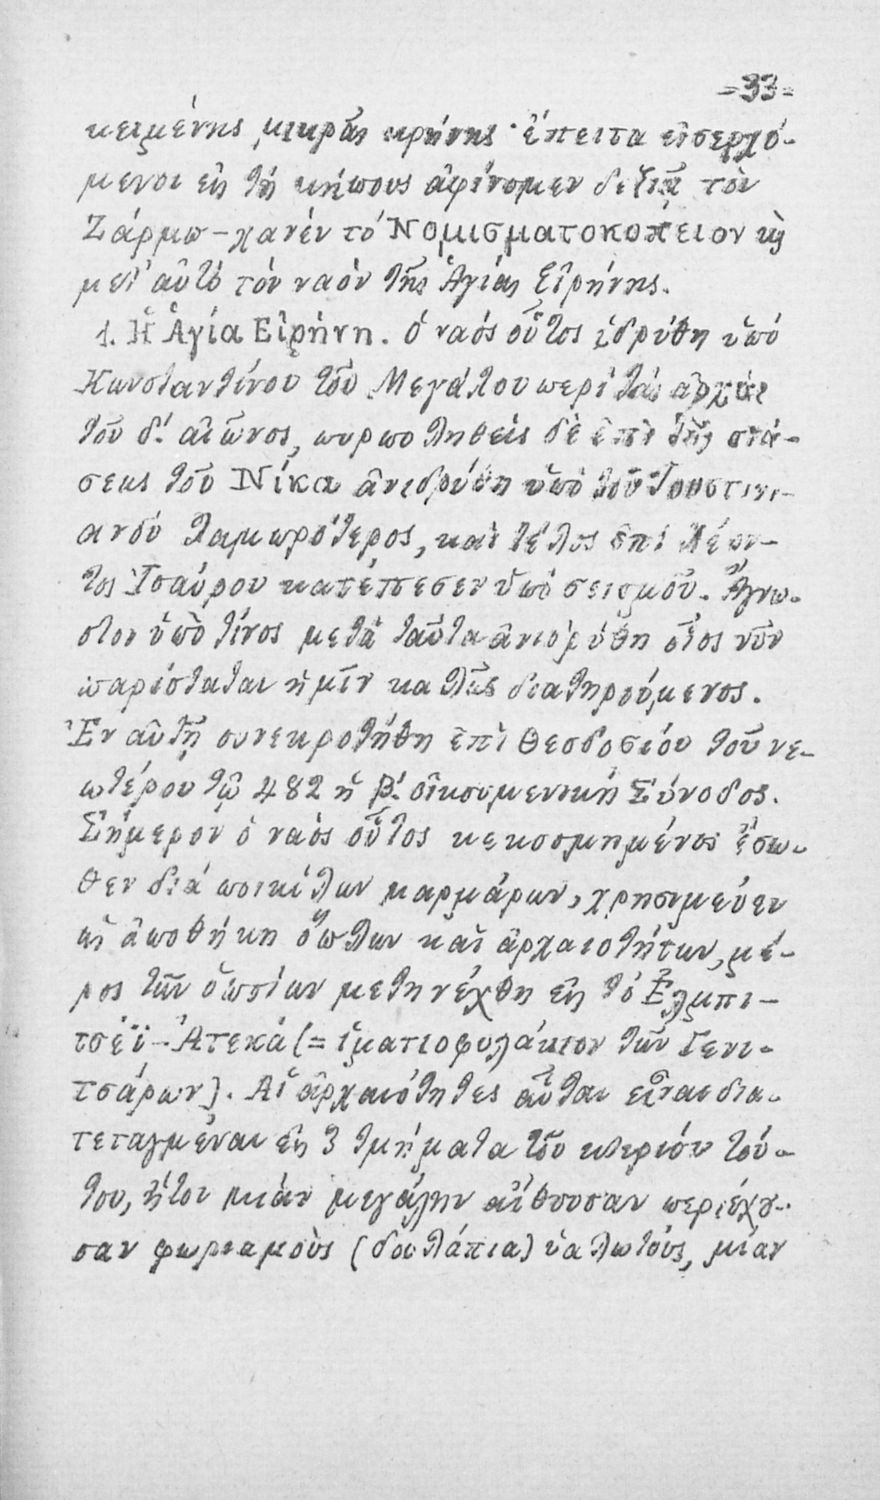 -33-
κειμένης μικρᾶς κρήνης· ἔπειτα εἰσερχό-
μενοι εἰς τοὺς κήπους ἀφίνομεν δεξιᾷ τὸν
Ζάρμπ-χανέν τὸ Νομισματοκοπεῖον κὶ
μετ' αὐτὸ τὸν ναὸν τῆς Ἁγίας Εἰρήνης.
1. Ἡ Ἁγία Εἰρήνη. Ὁ ναὸς οὗτος ἱδρύθη ὑπὸ
Κωνσταντίνου τοῦ Μεγάλου περὶ τὰς ἀρχὰς
τοῦ δ'. αἰῶνος, πυρποληθεὶς δὲ ἐπὶ τῆς στά-
σεως τοῦ Νίκα ἀνιδρύθη ὑπὸ τοῦ Ἰουστινι-
ανοῦ λαμπρότερος, καὶ τέλος ἐπὶ Λέον-
τος Ἰσαύρου κατέπεσεν ὑπὸ σεισμοῦ. Ἄγνω-
στον ὑπὸ τίνος μετὰ ταῦτα ἀνιδρύθη ὅπως νῦν
παρίσταται ἡμῖν καλῶς διατηρούμενος.
Ἐν αὐτῇ συνεκροτήθη ἐπὶ Θεοδοσίου τοῦ νε-
ωτέρου τῷ 482 ἡ β'. οἰκουμενικὴ Σύνοδος.
Σήμερον ὁ ναὸς οὗτος κεκοσμημένος ἔσω-
θεν διὰ ποικίλων μαρμάρων, χρησιμεύει
ὡς ἀποθήκη ὅπλων καὶ ἀρχαιοτήτων, μέ-
ρος τῶν ὁποίων μετηνέχθη εἰς τὸ Ἐλμπι-
τσέϊ-Ἀτεκά (= ἱματιοφυλάκιον τῶν Γενι-
τσάρων). Αἱ ἀρχαιότητες αὗται εἶναι δια-
τεταγμέναι εἰς 3 τμήματα τοῦ κτιρίου τού-
του, ἤτοι μίαν μεγάλην αἴθουσαν περιέχου-
σαν φωριαμοὺς (δολάπια) ὑαλωτούς, μίαν